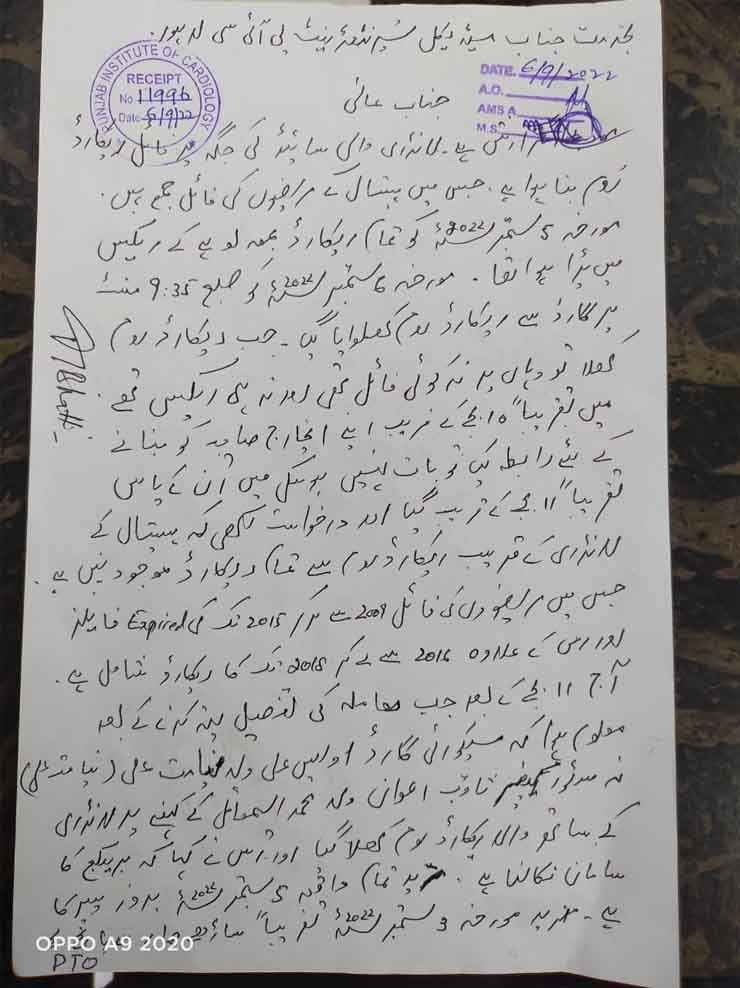 بخدمت جناب میڈیکل سپرنٹنڈنٹ پی آئی سی لاہور۔
PUNJAB INSTITUTE OF CARDIOLOGY
RECEIPT
No. 11996
Date 6/9/22
DATE. 6/9/2022
A.O.
AMS A
M.S.
جناب عالی
گزارش ہے۔ لانڈری والی سائیڈ کی جگہ پر فائل ریکارڈ
روم بنا ہوا ہے۔ جس میں ہسپتال کے مریضوں کی فائل جمع ہیں۔
مورخہ 5 ستمبر 2022ء کو تمام ریکارڈ بمعہ لوہے کے ریکس
میں پڑا ہوا تھا۔ مورخہ 6 ستمبر 2022ء کو صبح 9:35 منٹ
پر گارڈ سے ریکارڈ روم کھلوایا گیا۔ جب ریکارڈ روم
کھلا تو وہاں پر نہ کوئی فائل تھی اور نہ ہی ریکس تھے
میں تقریباً 10 بجے کے قریب اپنے انچارج صاحبہ کو بتانے
کے لئے رابطہ کیا تو بات نہیں ہو سکی میں ان کے پاس
تقریباً 11 بجے کے قریب گیا اور درخواست لکھی کہ ہسپتال کے
لانڈری کے قریب ریکارڈ روم سے تمام ریکارڈ موجود نہیں ہے۔
جس میں مریضوں کی فائل 2009 سے لیکر 2015 تک کی Expired فائیلز
اور اس کے علاوہ 2016 سے لیکر 2018 تک کا ریکارڈ شامل ہے۔
آج 11 بجے کے بعد جب معاملہ کی تفصیل پتہ کرنے کے بعد
معلوم ہوا کہ سیکورٹی گارڈ اویس علی ولد نیامت علی (نیامت علی)
نے ثاقب اعوان ولد محمد اسماعیل کے کہنے پر لانڈری
کے ساتھ والا ریکارڈ روم کھلا گیا اور اس نے کہا کہ کا
سامان نکالنا ہے۔ یہ تمام واقعہ 5 ستمبر 2022ء بروز پیر کا
ہے۔ مزید مورخہ 3 ستمبر 2022ء تقریباً
PTO
OPPO A9 2020